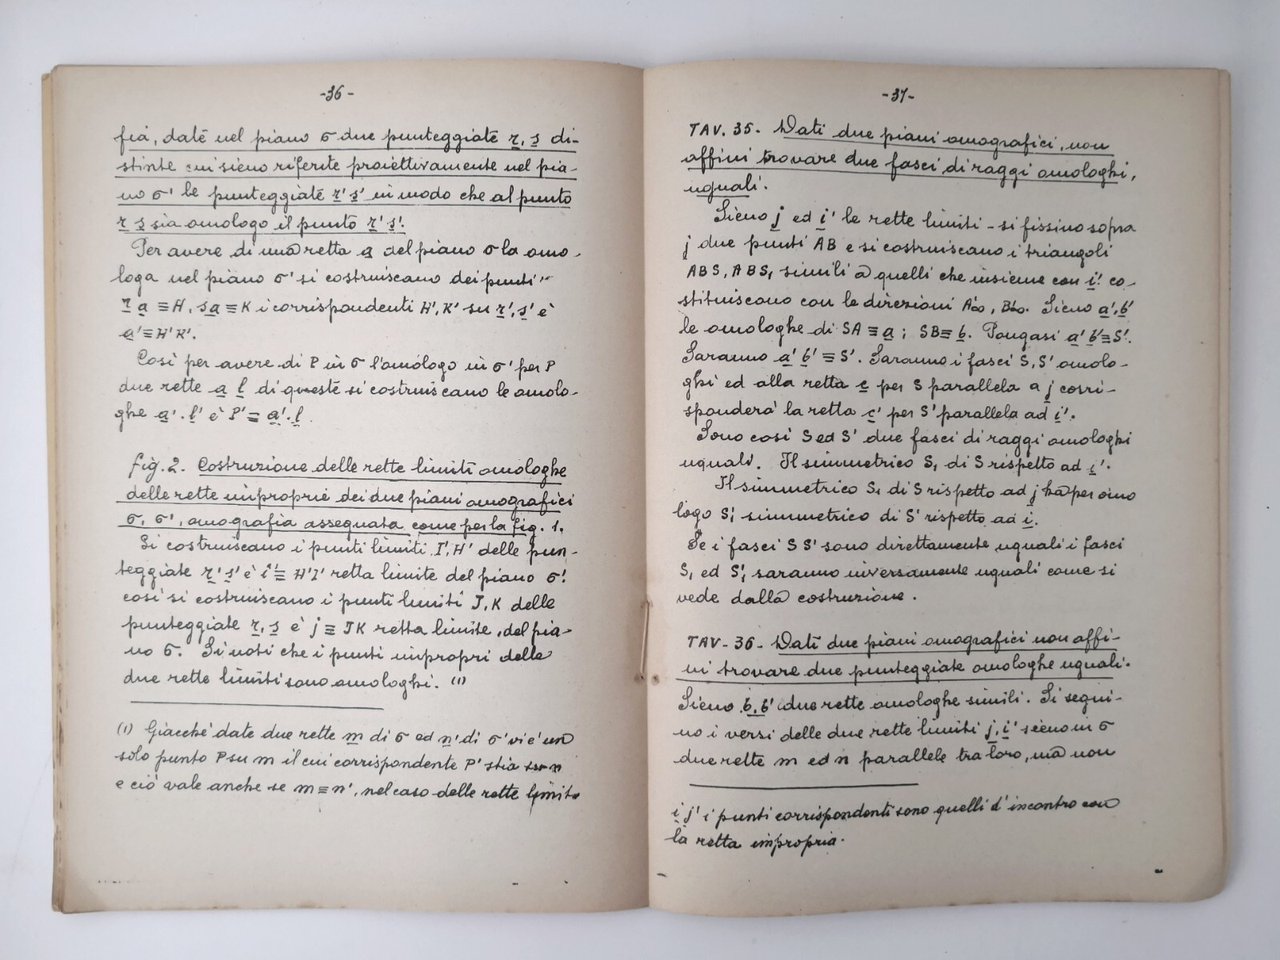 -36-
fia, date nel piano σ due punteggiate r, s di-
stinte cui sieno riferite proiettivamente nel pia-
no σ' le punteggiate r' s' in modo che al punto
r s sia omologo il punto r' s'.
Per avere di una retta a del piano σ la omo-
loga nel piano σ' si costruiscano dei punti
r a ≡ H, s a ≡ K i corrispondenti H', K' su r', s' è
a' ≡ H' K'.
Così per avere di P in σ l'omólogo in σ' per P
due rette a l di queste si costruiscano le omolo-
ghe a'. l' è P' ≡ a'. l.
fig. 2. Costruzione delle rette limiti omologhe
delle rette improprie dei due piani omografici
σ, σ', omografia assegnata come per la fig. 1.
Si costruiscano i punti limiti I', H' delle pun-
teggiate r' s' è i' ≡ H' I' retta limite del piano σ'.
così si costruiscano i punti limiti J, K delle
punteggiate r, s è j ≡ JK retta limite del pia-
no σ. Si noti che i punti impropri delle
due rette limiti sono omologhi. (1)
(1) Giacchè date due rette m di σ ed n' di σ' vi è un
solo punto P su m il cui corrispondente P' stia su n
e ciò vale anche se m ≡ n', nel caso delle rette limite
-37-
TAV. 35. - Dati due piani omografici, non
affini trovare due fasci di raggi omologhi,
uguali.
Sieno j ed i' le rette limiti - si fissino sopra
j due punti AB e si costruiscano i triangoli
ABS, ABS₁ simili a quelli che insieme con i' co-
stituiscono con le direzioni A'∞, B'∞. Sieno a', b'
le omologhe di SA ≡ a; SB ≡ b. Pongasi a' b' ≡ S'.
Saranno a' b' ≡ S'. Saranno i fasci S, S' omolo-
ghi ed alla retta c per S parallela a j corri-
sponderà la retta c' per S' parallela ad i'.
Sono così S ed S' due fasci di raggi omologhi
uguali. Il simmetrico S₁ di S rispetto ad i'.
Il simmetrico S₁ di S rispetto ad j ha per omo
logo S'₁ simmetrico di S' rispetto ad i.
Se i fasci S S' sono direttamente uguali i fasci
S₁ ed S'₁ saranno inversamente uguali come si
vede dalla costruzione.
TAV. 36 - Dati due piani omografici non affi-
ni trovare due punteggiate omologhe uguali.
Sieno b, b' due rette omologhe simili. Si segui-
no i versi delle due rette limiti j, i' sieno in σ
due rette m ed n parallele tra loro, ma non
i j' i punti corrispondenti sono quelli d'incontro con
la retta impropria.